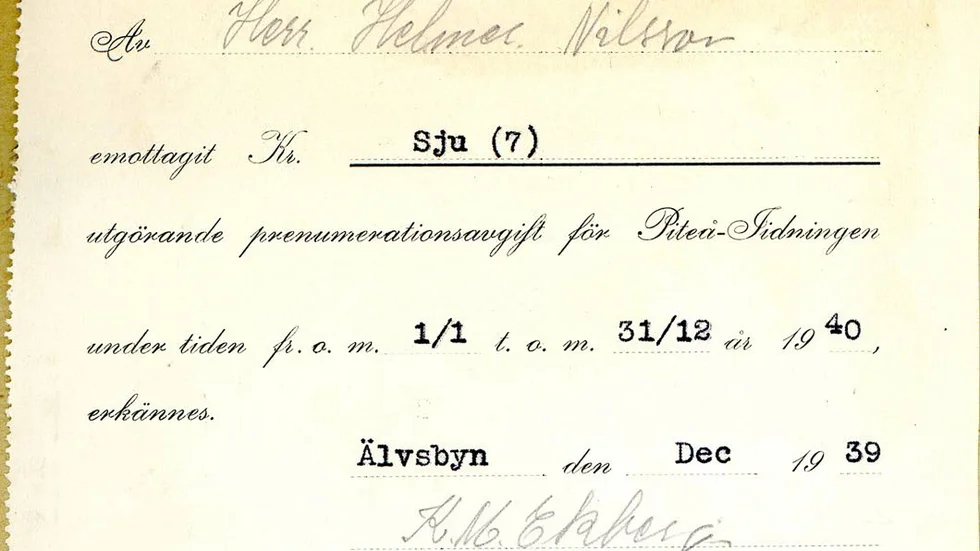 Av Herr. Helmer. Nilsson
emottagit Kr. Sju (7)
utgörande prenumerationsavgift för Piteå-Tidningen
under tiden fr. o. m. 1/1 t. o. m. 31/12 år 1940,
erkännes.
Älvsbyn den Dec 1939
K. M. Ekberg